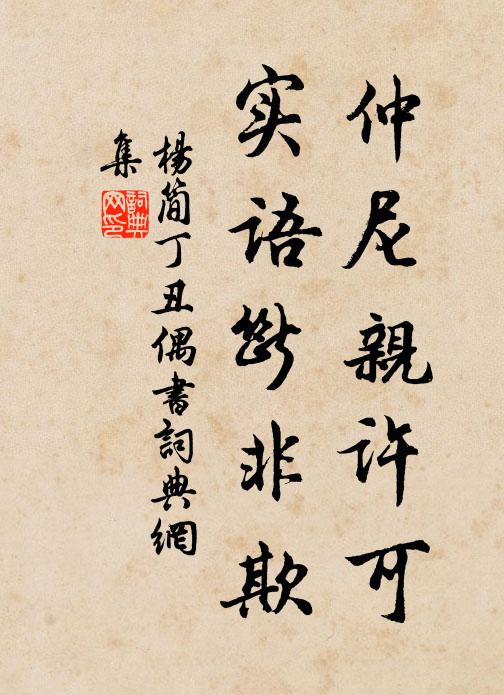 仲尼親许可
实语斷非欺
楊简丁丑偶書詞典網
集
詞典
网印